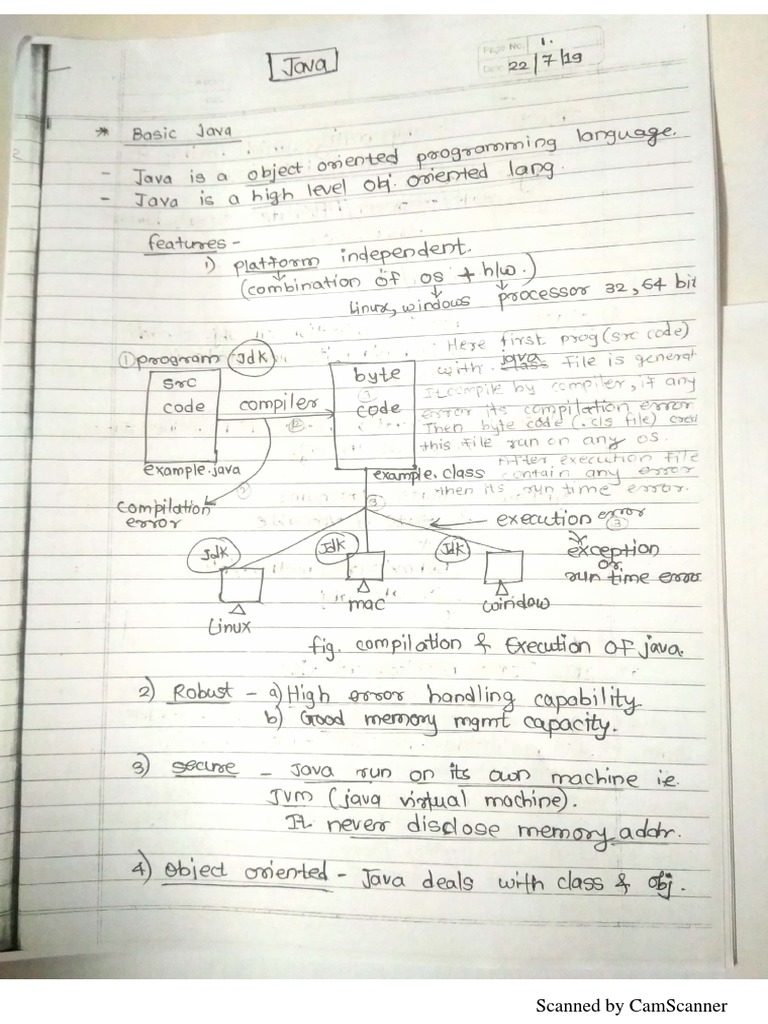 Page No. 1.
Date 22/7/19
Java
* Basic Java
- Java is a object oriented programming language.
- Java is a high level obj. oriented lang.
features -
1) platform independent.
(combination of os + h/w.)
Linux, windows processor 32, 64 bit
Here first prog (src code)
with java class file is generat
It compile by compiler, if any
error its compilation error
Then byte code (.cls file)
this file run on any os.
After execution file
contain any error
then its run time error.
① program Jdk
src
code
compiler
②
byte
③
code
example.java
example.class
compilation
error
③
execution error
③
exception
or
run time error
Jdk
Jdk
Jdk
Linux
"mac"
window
fig. compilation & Execution OF java.
2) Robust - a) High error handling capability
b) Good memory mgmt capacity.
3) secure - Java run on its own machine i.e.
Jvm (java virtual machine).
It never disclose memory addr.
4) object oriented - Java deals with class & obj.
Scanned by CamScanner